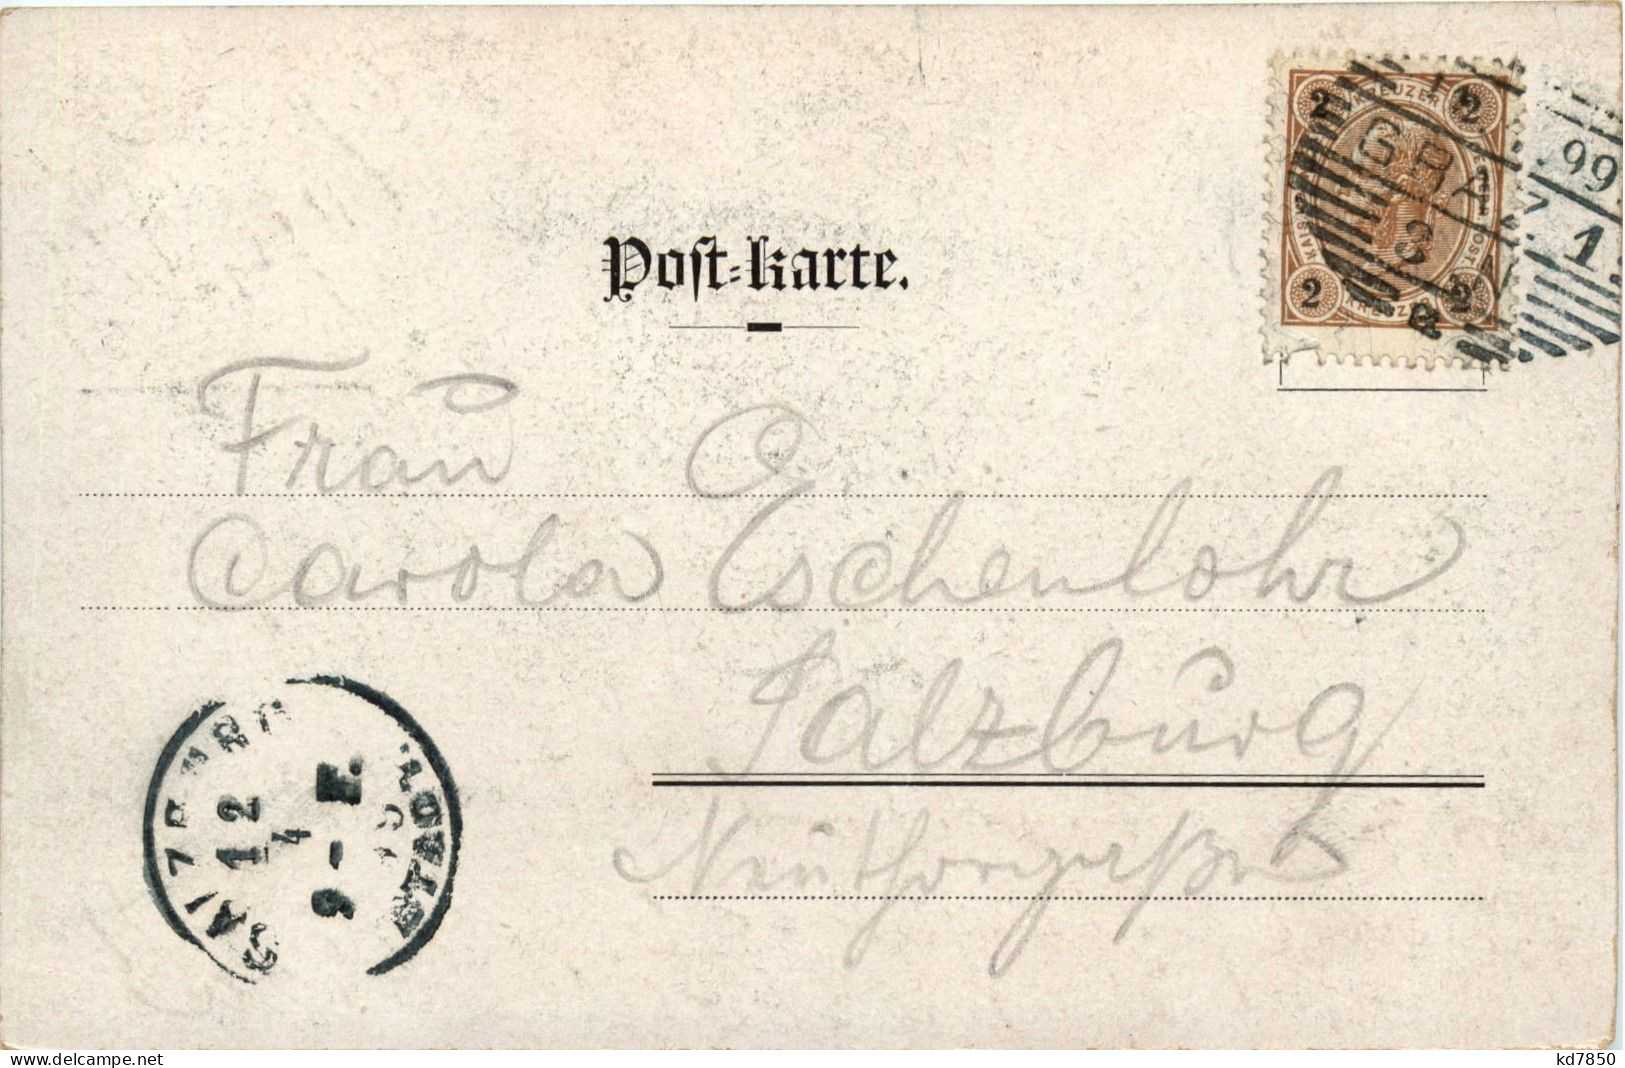 Post-karte.
2 2
ZWEI KREUZER
GRAZ
99
1
8
2 KREUZER 2
Frau
Carola Eschenlohr
Salzburg
Neuthorgaße
SALZBURG STADT
12
4
9-F.
kd7850